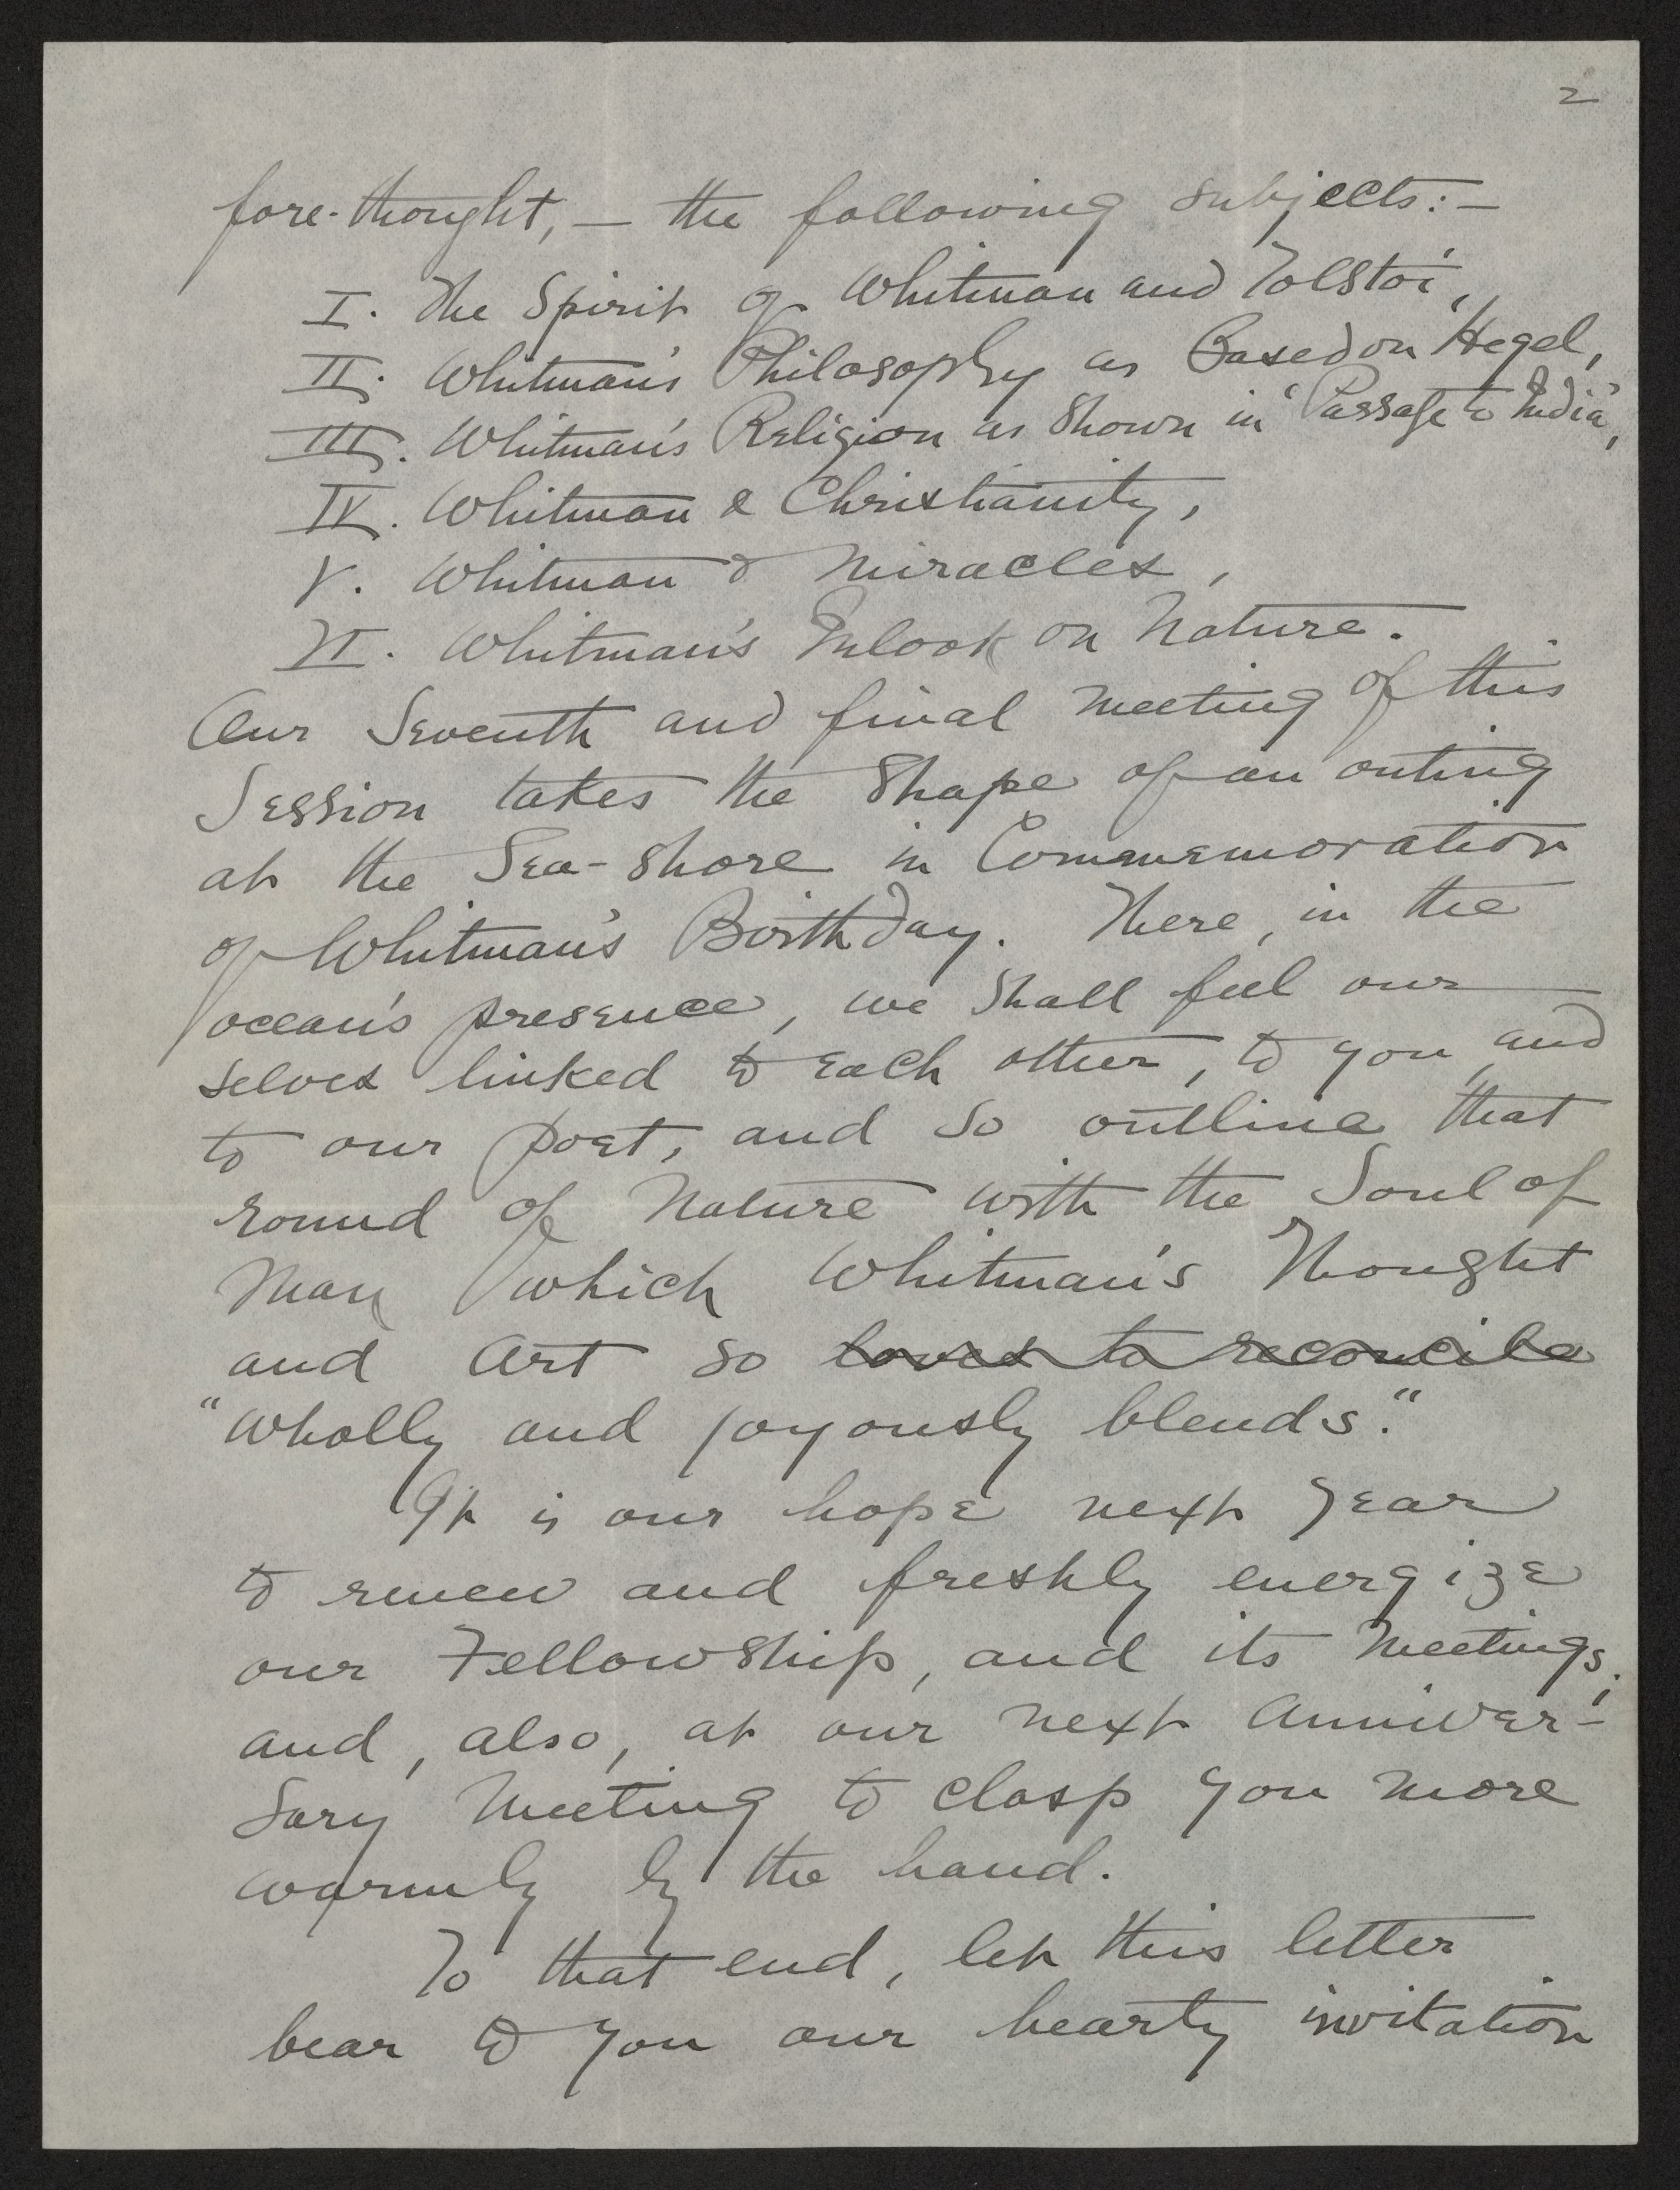 2
fore-thought, — the following subjects: —
I. The Spirit of Whitman and Tolstoi,
II. Whitman's Philosophy as Based on Hegel,
III. Whitman's Religion as Shown in "Passage to India",
IV. Whitman & Christianity,
V. Whitman & Miracles,
VI. Whitman's Inlook on Nature.
Our Seventh and final meeting of this
Session takes the Shape of an outing
at the Sea-Shore in Commemoration
of Whitman's Birthday. There, in the
ocean's presence, we Shall feel our
selves linked to each other, to you, and
to our poet, and so outline that
round of Nature with the Soul of
Man which Whitman's Thought
and Art so loves to reconcile
"wholly and joyously blends."
It is our hope next year
to renew and freshly energize
our Fellowship, and its Meetings;
and, also, at our next Anniver-
sary Meeting to clasp you more
warmly by the hand.
To that end, let this letter
bear to you our hearty invitation